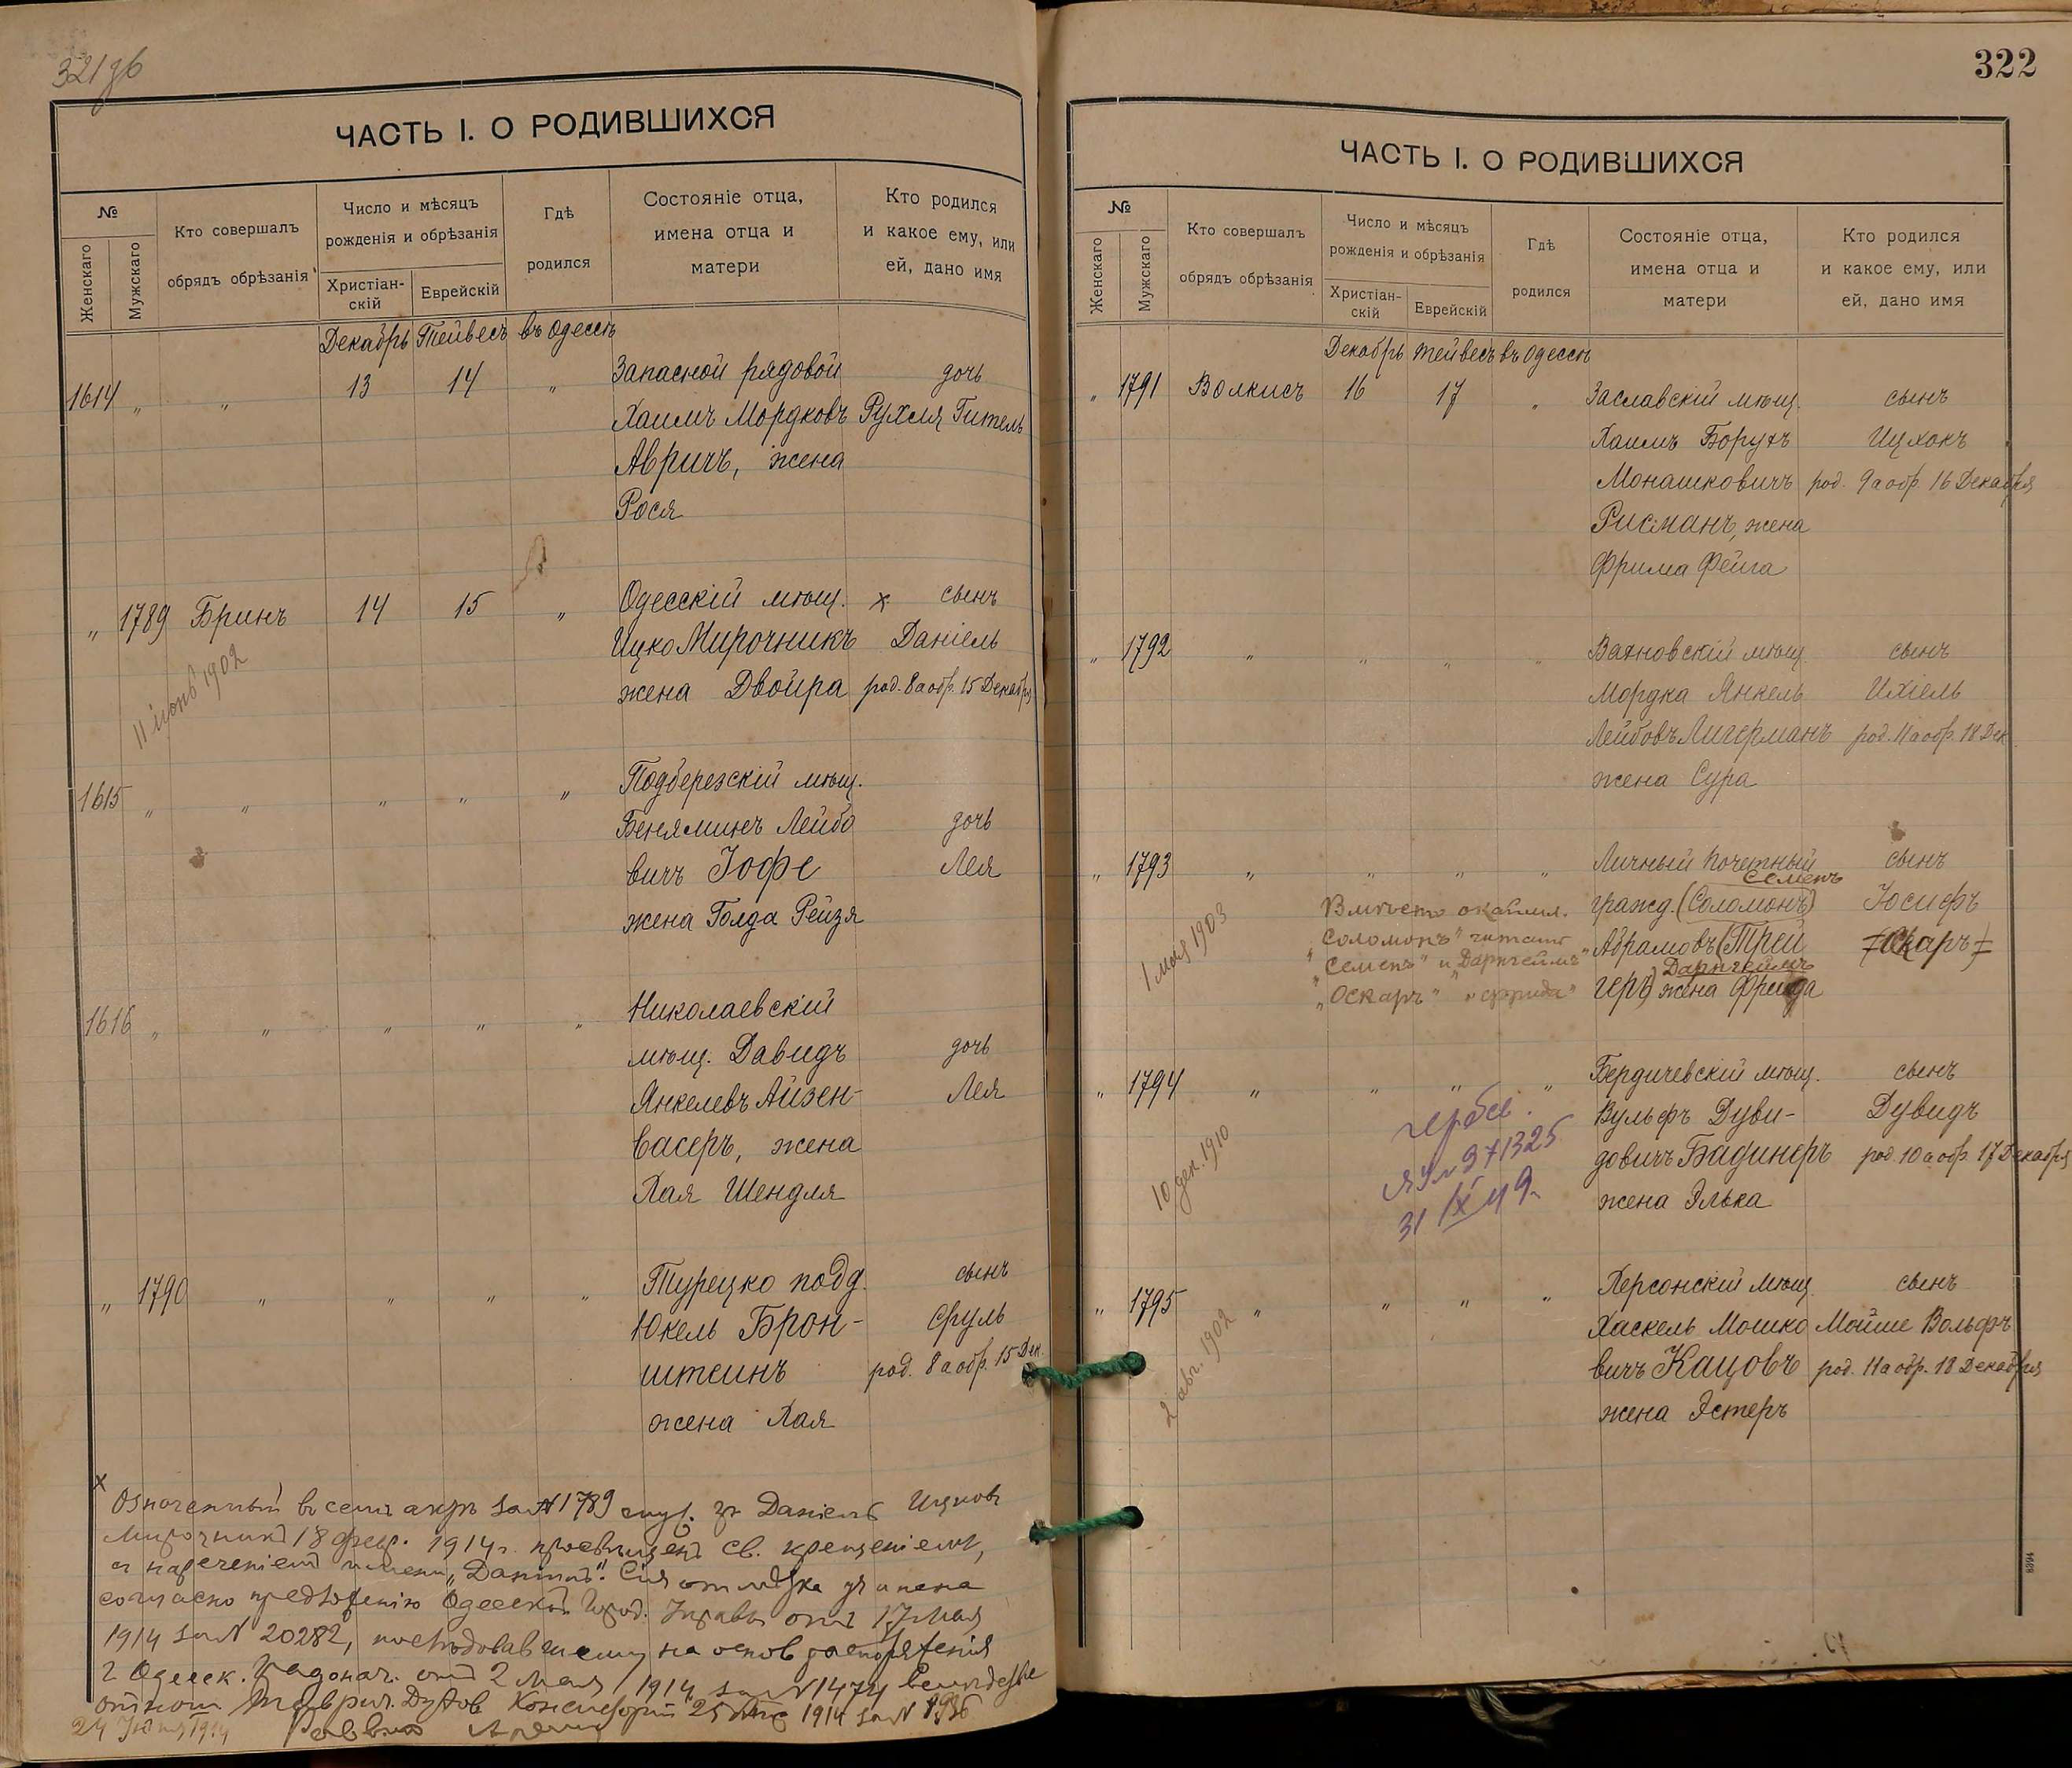 321 об
ЧАСТЬ I. О РОДИВШИХСЯ
№
Женскаго
Мужскаго
Кто совершалъ
обрядъ обрѣзанія
Число и мѣсяцъ
рожденія и обрѣзанія
Христіан-
скій
Еврейскій
Гдѣ
родился
Состояніе отца,
имена отца и
матери
Кто родился
и какое ему, или
ей, дано имя
Декабрь Тейвесъ въ Одессѣ
1614 " " 13 14 " Запасной рядовой дочь
Хаимъ Мордковъ Рухля Гитель
Авричъ, жена
Рося
" 1789 Бринъ 14 15 " Одесскій мѣщ. х сынъ
Ицко Мирочникъ Даніель
жена Двойра род. 8 а обр. 15 Декабря
11 іюнь 1902
1615 " " " " " Подберезскій мѣщ.
Беняминъ Лейбо дочь
вичъ Іофе Лея
жена Голда Рейзя
1616 " " " " " Николаевскій
мѣщ. Давидъ дочь
Янкелевъ Айзен- Лея
васеръ, жена
Хая Шендля
" 1790 " " " " Турецко подд. сынъ
Юкель Брон- Сруль
штеинъ род. 8 а обр. 15 Дек.
жена Хая
х
Означенный в семъ актѣ за № 1789 Даніель Ицков
Мирочникъ 18 февр. 1914 г. просвѣщенъ св. крещеніемъ,
с нареченіемъ имени "Даніилъ". Сія отмѣтка учинена
согласно предложенію Одесской Город. Управы отъ 17 Мая
1914 за № 20282, послѣдовавшему на основ распоряженія
г Одесск. Градонач. отъ 2 Мая 1914 за № 1474
отнош Таврич. Духов Консисторіи 25 1914 за №
24 1914 Раввинъ
322
ЧАСТЬ I. О РОДИВШИХСЯ
№
Женскаго
Мужскаго
Кто совершалъ
обрядъ обрѣзанія
Число и мѣсяцъ
рожденія и обрѣзанія
Христіан-
скій
Еврейскій
Гдѣ
родился
Состояніе отца,
имена отца и
матери
Кто родился
и какое ему, или
ей, дано имя
Декабрь Тейвесъ въ Одессѣ
" 1791 Волкисъ 16 17 " Заславскій мѣщ. сынъ
Хаимъ Борухъ Ицхокъ
Монашковичъ род. 9 а обр. 16 Декабря
Рисманъ, жена
Фрима Фейга
" 1792 " " " " Вахновскій мѣщ. сынъ
Мордка Янкель Ихіель
Лейбовъ Лигерманъ род. 11 а обр. 18 Дек.
жена Сура
" 1793 " " " " Личный почетный сынъ
Семенъ
гражд. (Соломонъ) Юсифъ
Абрамовъ (Трей (Оскаръ)
Дарнгеймъ
геръ) жена Фрида
1 мая 1903
Вмѣсто
"Соломонъ" читать
"Семенъ" и "Дарнгеймъ"
"Оскаръ" и "Фрида"
" 1794 " " " " Бердичевскій мѣщ. сынъ
Вульфъ Дуви- Дувидъ
довичъ Бадинеръ род. 10 а обр. 17 Декабря
жена Элька
10 дек. 1910
371325
31/X
" 1795 " " " " Херсонскій мѣщ. сынъ
Хаскель Мошко Мойше Вольфъ
вичъ Кацовъ род. 11 а обр. 18 Декабря
жена Эстеръ
2 авг. 1902